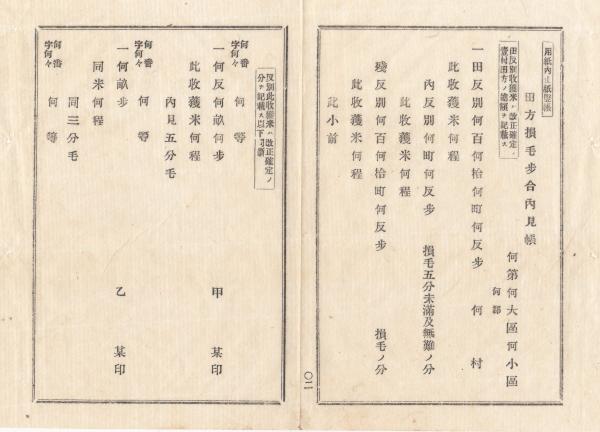 用紙内山紙竪帳
田方損毛步合內見帳
何第何大區何小區
何郡
何村
田反別收穫米ハ改正確定ノ
壹村田方ノ總額ヲ記載ス
一田反別何百何拾何町何反步
此收穫米何程
內反別何町何反步 損毛五分未滿及無難ノ分
此收穫米何程
殘反別何百何拾町何反步 損毛ノ分
此收穫米何程
此小前
〇二
反別此收穫米ハ改正確定ノ
分ヲ記載ス以下可準
何番
字何々 何等
一何反何畝何步 甲 某印
此收穫米何程
內見五分毛
何番
字何々 何等
一何畝步 乙 某印
同米何程
同三分毛
何番
字何々 何等